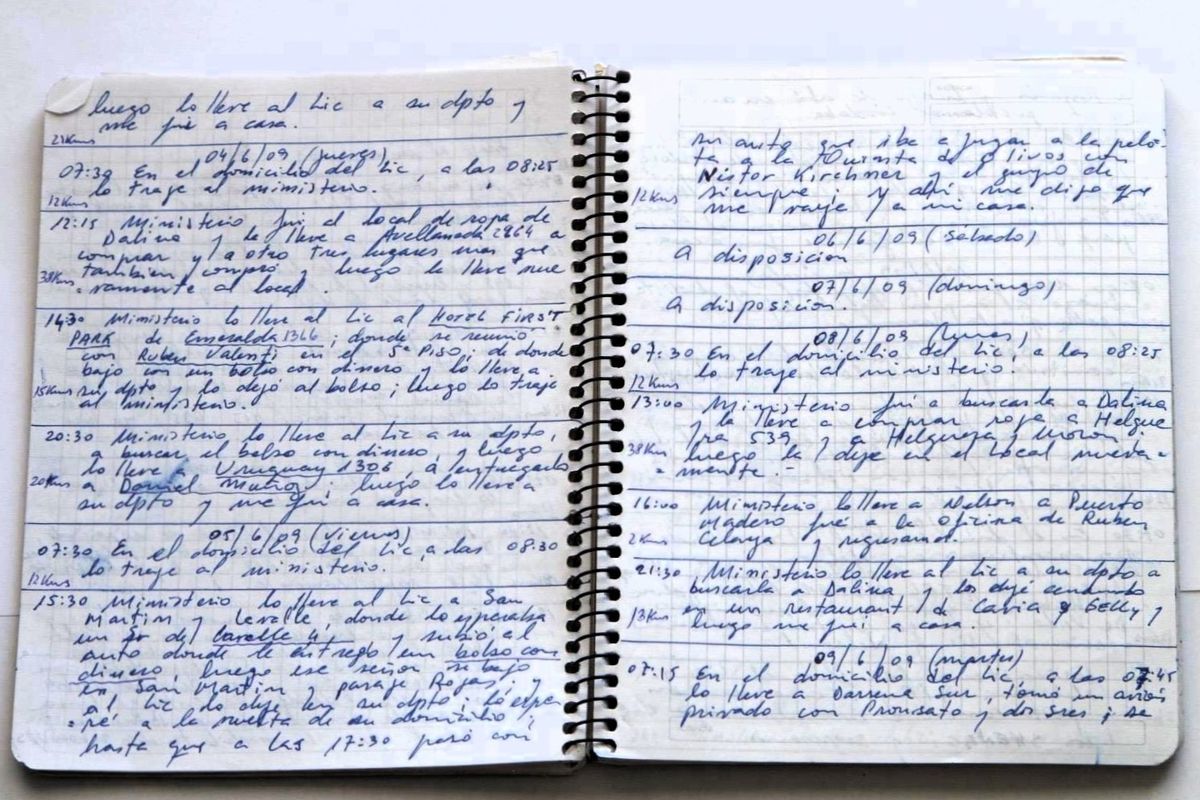 luego lo lleve al Lic a su dpto y
me fui a casa.
21Kms
04/6/09 (jueves)
07:30 En el domicilio del Lic, a las 08:25
lo traje al ministerio.
12Kms
12:15 Ministerio fui el local de ropa de
Dalina y la lleve a Avellaneda 2964 a
comprar y a otro tres lugares mas que
tambien compró y luego la lleve nue
38Kms = vamente al local.
14:30 Ministerio lo lleve al Lic al HOTEL FIRST
PARK de Esmeralda 1366; donde se reunió
con Ruben Valenti en el 5º Piso; de donde
bajo con un bolso con dinero y lo lleve a
15Kms su dpto y lo dejó al bolso; luego lo traje
al ministerio.
20:30 Ministerio lo lleve al Lic a su dpto,
a buscar el bolso con dinero, y luego
lo lleve a Uruguay 1306, a entregarlo
20Kms a Daniel Muñoz; luego lo lleve a
su dpto y me fui a casa.
05/6/09 (viernes)
07:30 En el domicilio del Lic, a las 08:30
lo traje al ministerio.
12Kms
15:30 Ministerio lo lleve al Lic a San
Martin y Lavalle, donde lo esperaba
un Sr de y subió al
auto donde le entrego un bolso con
dinero, luego ese señor se bajo
en San Martin y pasaje Rojas, y
al Lic lo deje en su dpto, lo espe
= ré a la vuelta de su domicilio;
hasta que a las 17:30 pasó con
su auto que iba a jugar a la pelo-
ta a la Quinta de Olivos con
Nestor Kirchner y el grupo de
siempre; y ahi me dijo que
12Kms me vaya y a mi casa.
06/6/09 (Sabado)
A disposicion
07/6/09 (domingo)
A disposicion.
08/6/09 (lunes)
07:30 En el domicilio del Lic, a las 08:25
lo traje al ministerio.
12Kms
13:00 Ministerio fui a buscarla a Dalina
y la lleve a comprar ropa a Helgue
ra 539 y a Helguera y Moron
38Kms luego la deje en el local nueva=
= mente.-
16:00 Ministerio lo lleve a Nelson a Puerto
Madero fue a la oficina de Ruben
2Kms y regresamos.
21:30 Ministerio lo lleve al Lic a su dpto a
buscarla a Dalina y los dejé cenando
en un restaurant de Cavia y Gelly y
13Kms luego me fui a casa.
09/6/09 (martes)
07:15 En el domicilio del Lic, a las 07:45
lo lleve a Darsena Sur, tomó un avion
privado con y dos sres; se